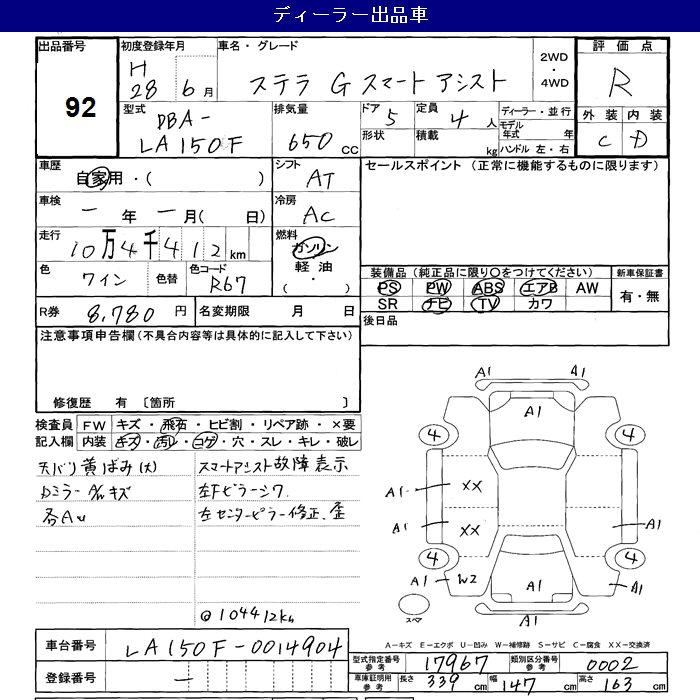 ディーラー出品車
出品番号 92
初度登録年月 H 28年 6月
車名・グレード ステラ G スマートアシスト
2WD・4WD
評価点 R
外装 C 内装 D
型式 DBA-LA150F
排気量 650 cc
ドア 5
形状
定員 4人
積載 kg
ディーラー・並行
モデル年式 年
ハンドル 左・右
車歴 自家用・( )
シフト AT
車検 ー年 ー月( 日)
冷房 AC
走行 10万4千412km
燃料 ガソリン 軽油 ( ・ )
色 ワイン 色替 色コード R67
R券 8,780円
名変期限 月 日
セールスポイント (正常に機能するものに限ります)
装備品(純正品に限り○をつけてください)
PS PW ABS エアB AW
SR ナビ TV カワ
新車保証書 有・無
後日品
注意事項申告欄(不具合内容等は具体的に記入して下さい)
修復歴 有 〔箇所 〕
検査員記入欄
FW キズ・飛石・ヒビ割・リペア跡・×要
内装 キズ・汚レ・コゲ・穴・スレ・キレ・破レ
天バリ黄ばみ(大)
Dミラー キズ
各AU
スマートアシスト故障表示
左Fピラーシワ
左センターピラー修正、歪
@104412km
A1 A1
A1
4 4
A1 XX
A1 XX A1
4 4
A1 W2 A1 A1
A1
スペア
A-キズ E-エクボ U-凹み W-補修跡 S-サビ C-腐食 XX-交換済
車台番号 LA150F-0014904
登録番号 ー
型式指定番号 参考 17967
類別区分番号 参考 0002
車庫証明用 参考 長さ 339cm 幅 147cm 高さ 163cm